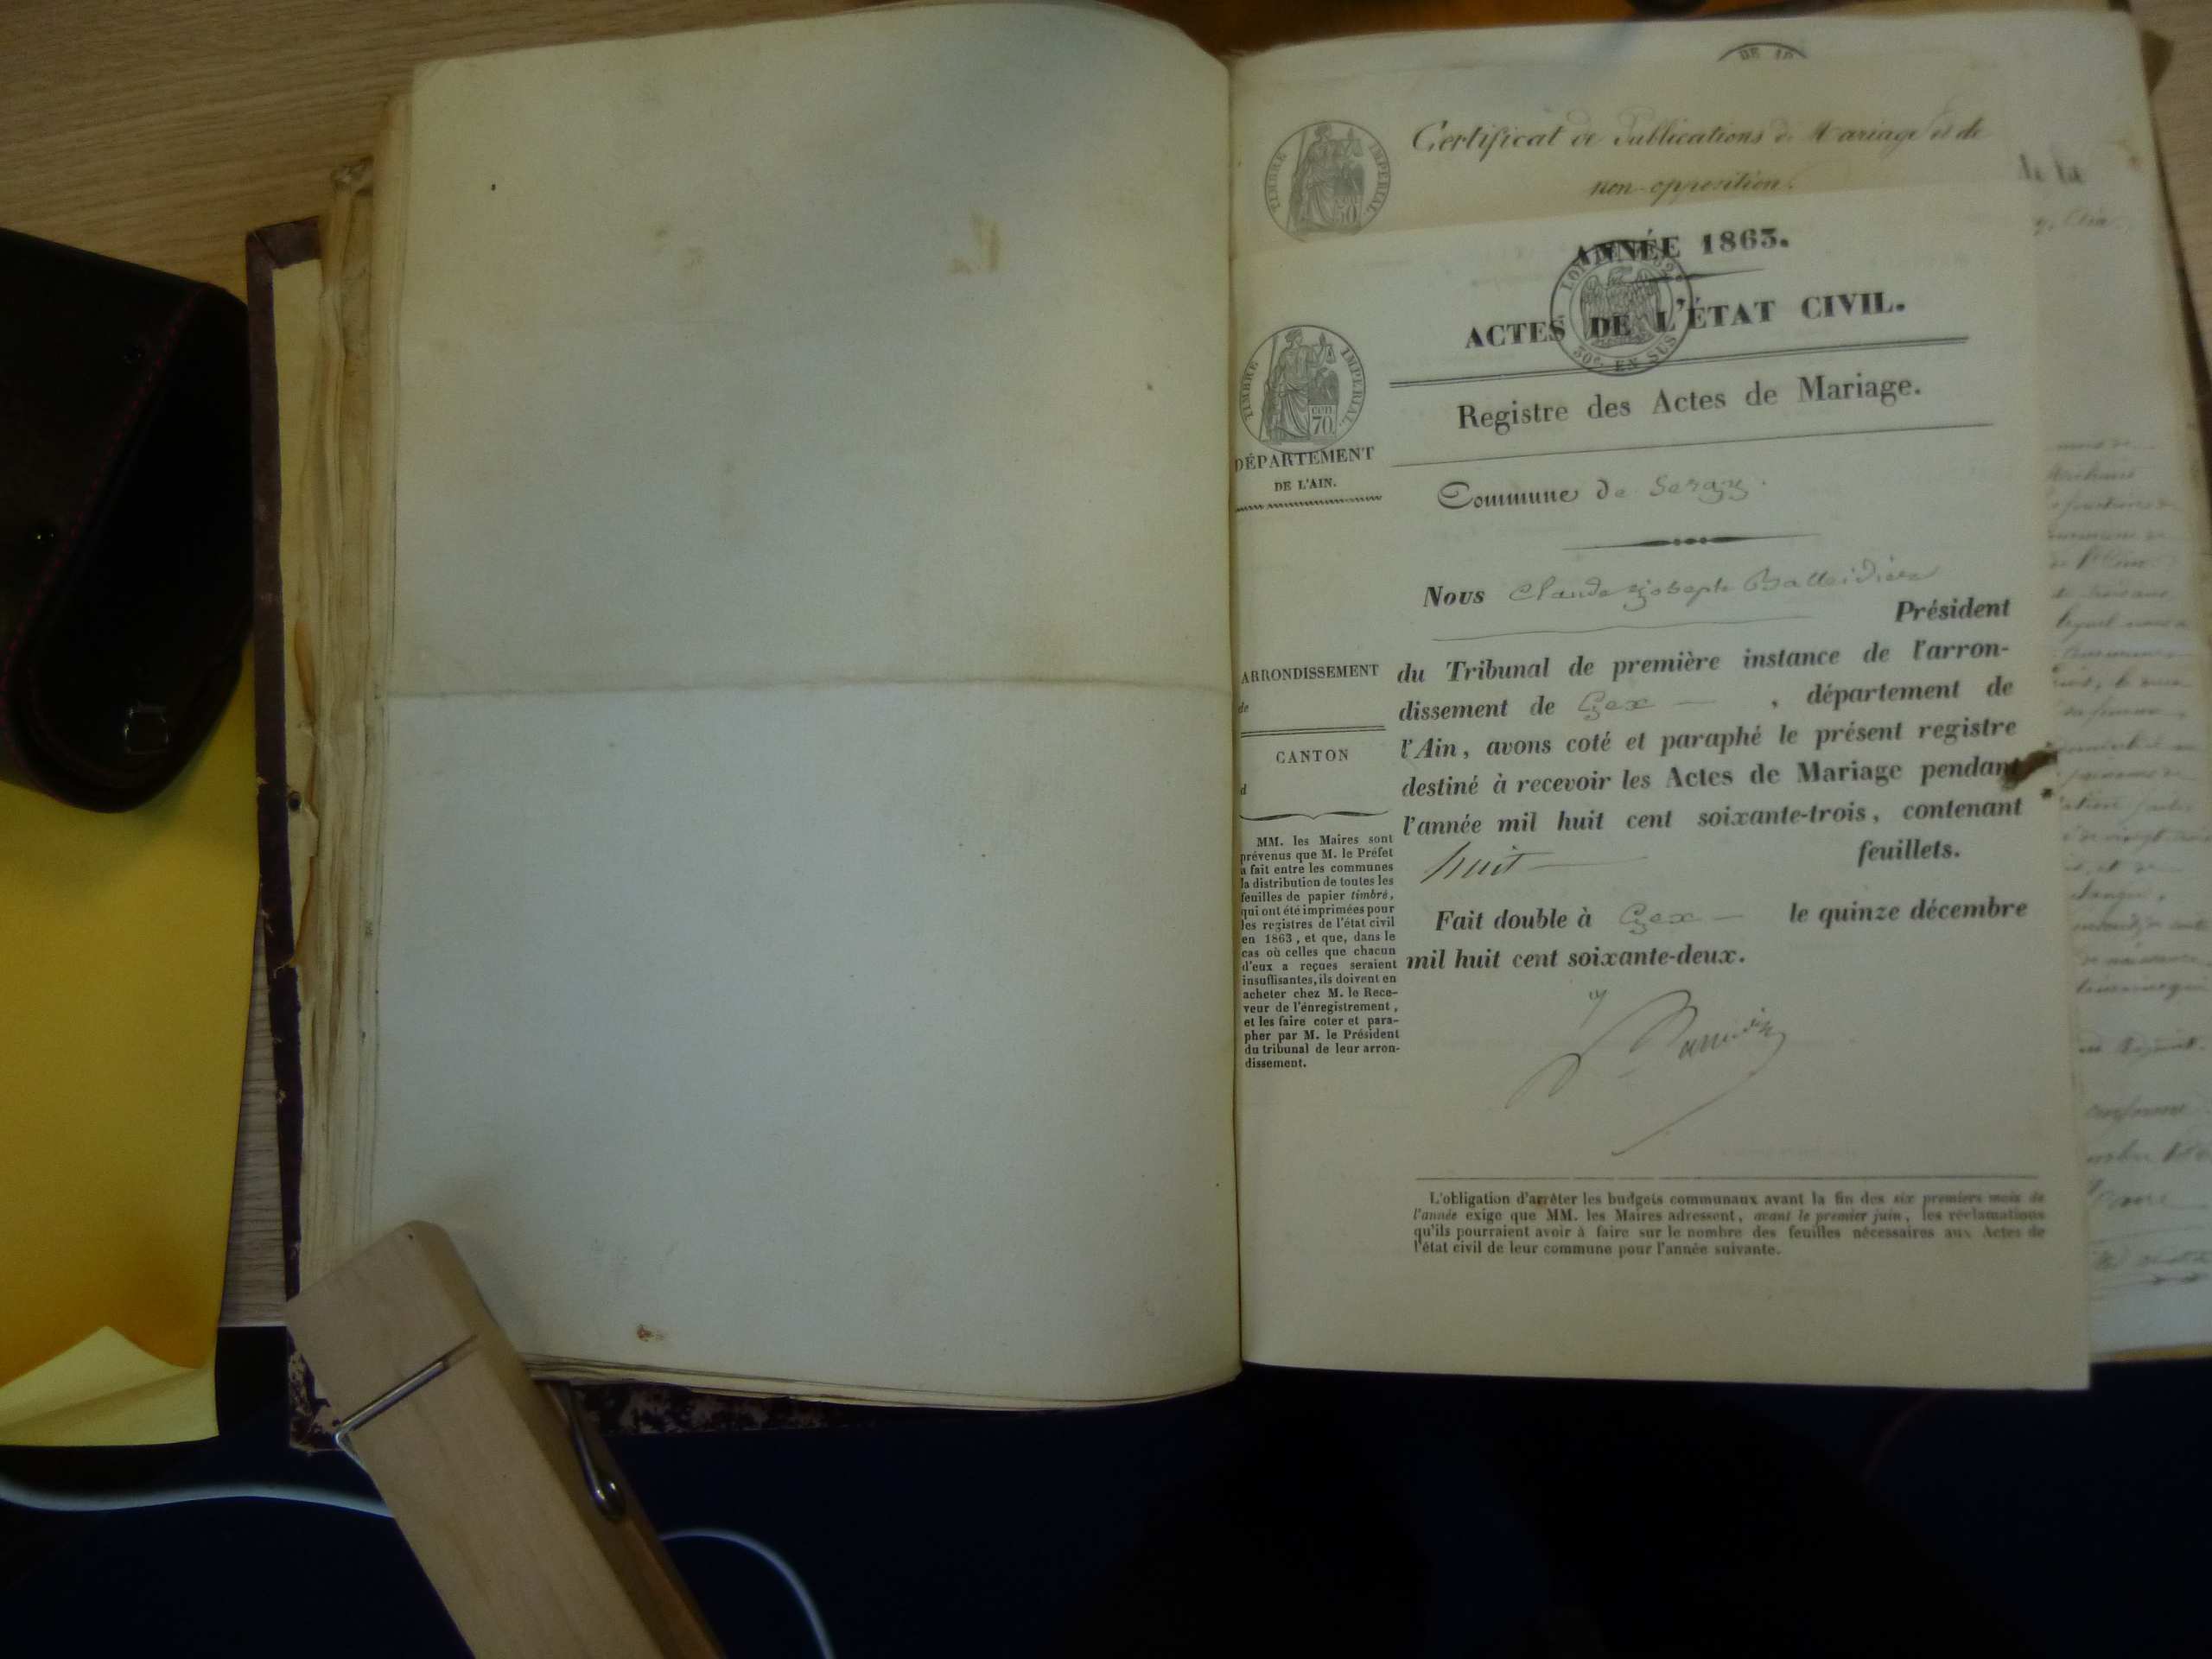 DE 10
Certificat de Publications de Mariage et de
non-opposition.
TIMBRE IMPERIAL
50
ANNÉE 1863.
30c. EN SUS
ACTES DE L'ÉTAT CIVIL.
Registre des Actes de Mariage.
TIMBRE IMPERIAL
cen
70
DÉPARTEMENT
DE L'AIN.
Commune de Sergy.
Nous Claude Joseph
Président
du Tribunal de première instance de l'arron-
dissement de Gex — , département de
l'Ain, avons coté et paraphé le présent registre
destiné à recevoir les Actes de Mariage pendant
l'année mil huit cent soixante-trois, contenant
huit — feuillets.
Fait double à Gex — le quinze décembre
mil huit cent soixante-deux.
ARRONDISSEMENT
de
CANTON
d
MM. les Maires sont
prévenus que M. le Préfet
a fait entre les communes
la distribution de toutes les
feuilles de papier timbré,
qui ont été imprimées pour
les registres de l'état civil
en 1863, et que, dans le
cas où celles que chacun
d'eux a reçues seraient
insuffisantes, ils doivent en
acheter chez M. le Rece-
veur de l'énregistrement,
et les faire coter et para-
pher par M. le Président
du tribunal de leur arron-
dissement.
L'obligation d'arrêter les budgets communaux avant la fin des six premiers mois de
l'année exige que MM. les Maires adressent, avant le premier juin, les réclamations
qu'ils pourraient avoir à faire sur le nombre des feuilles nécessaires aux Actes de
l'état civil de leur commune pour l'année suivante.
de la